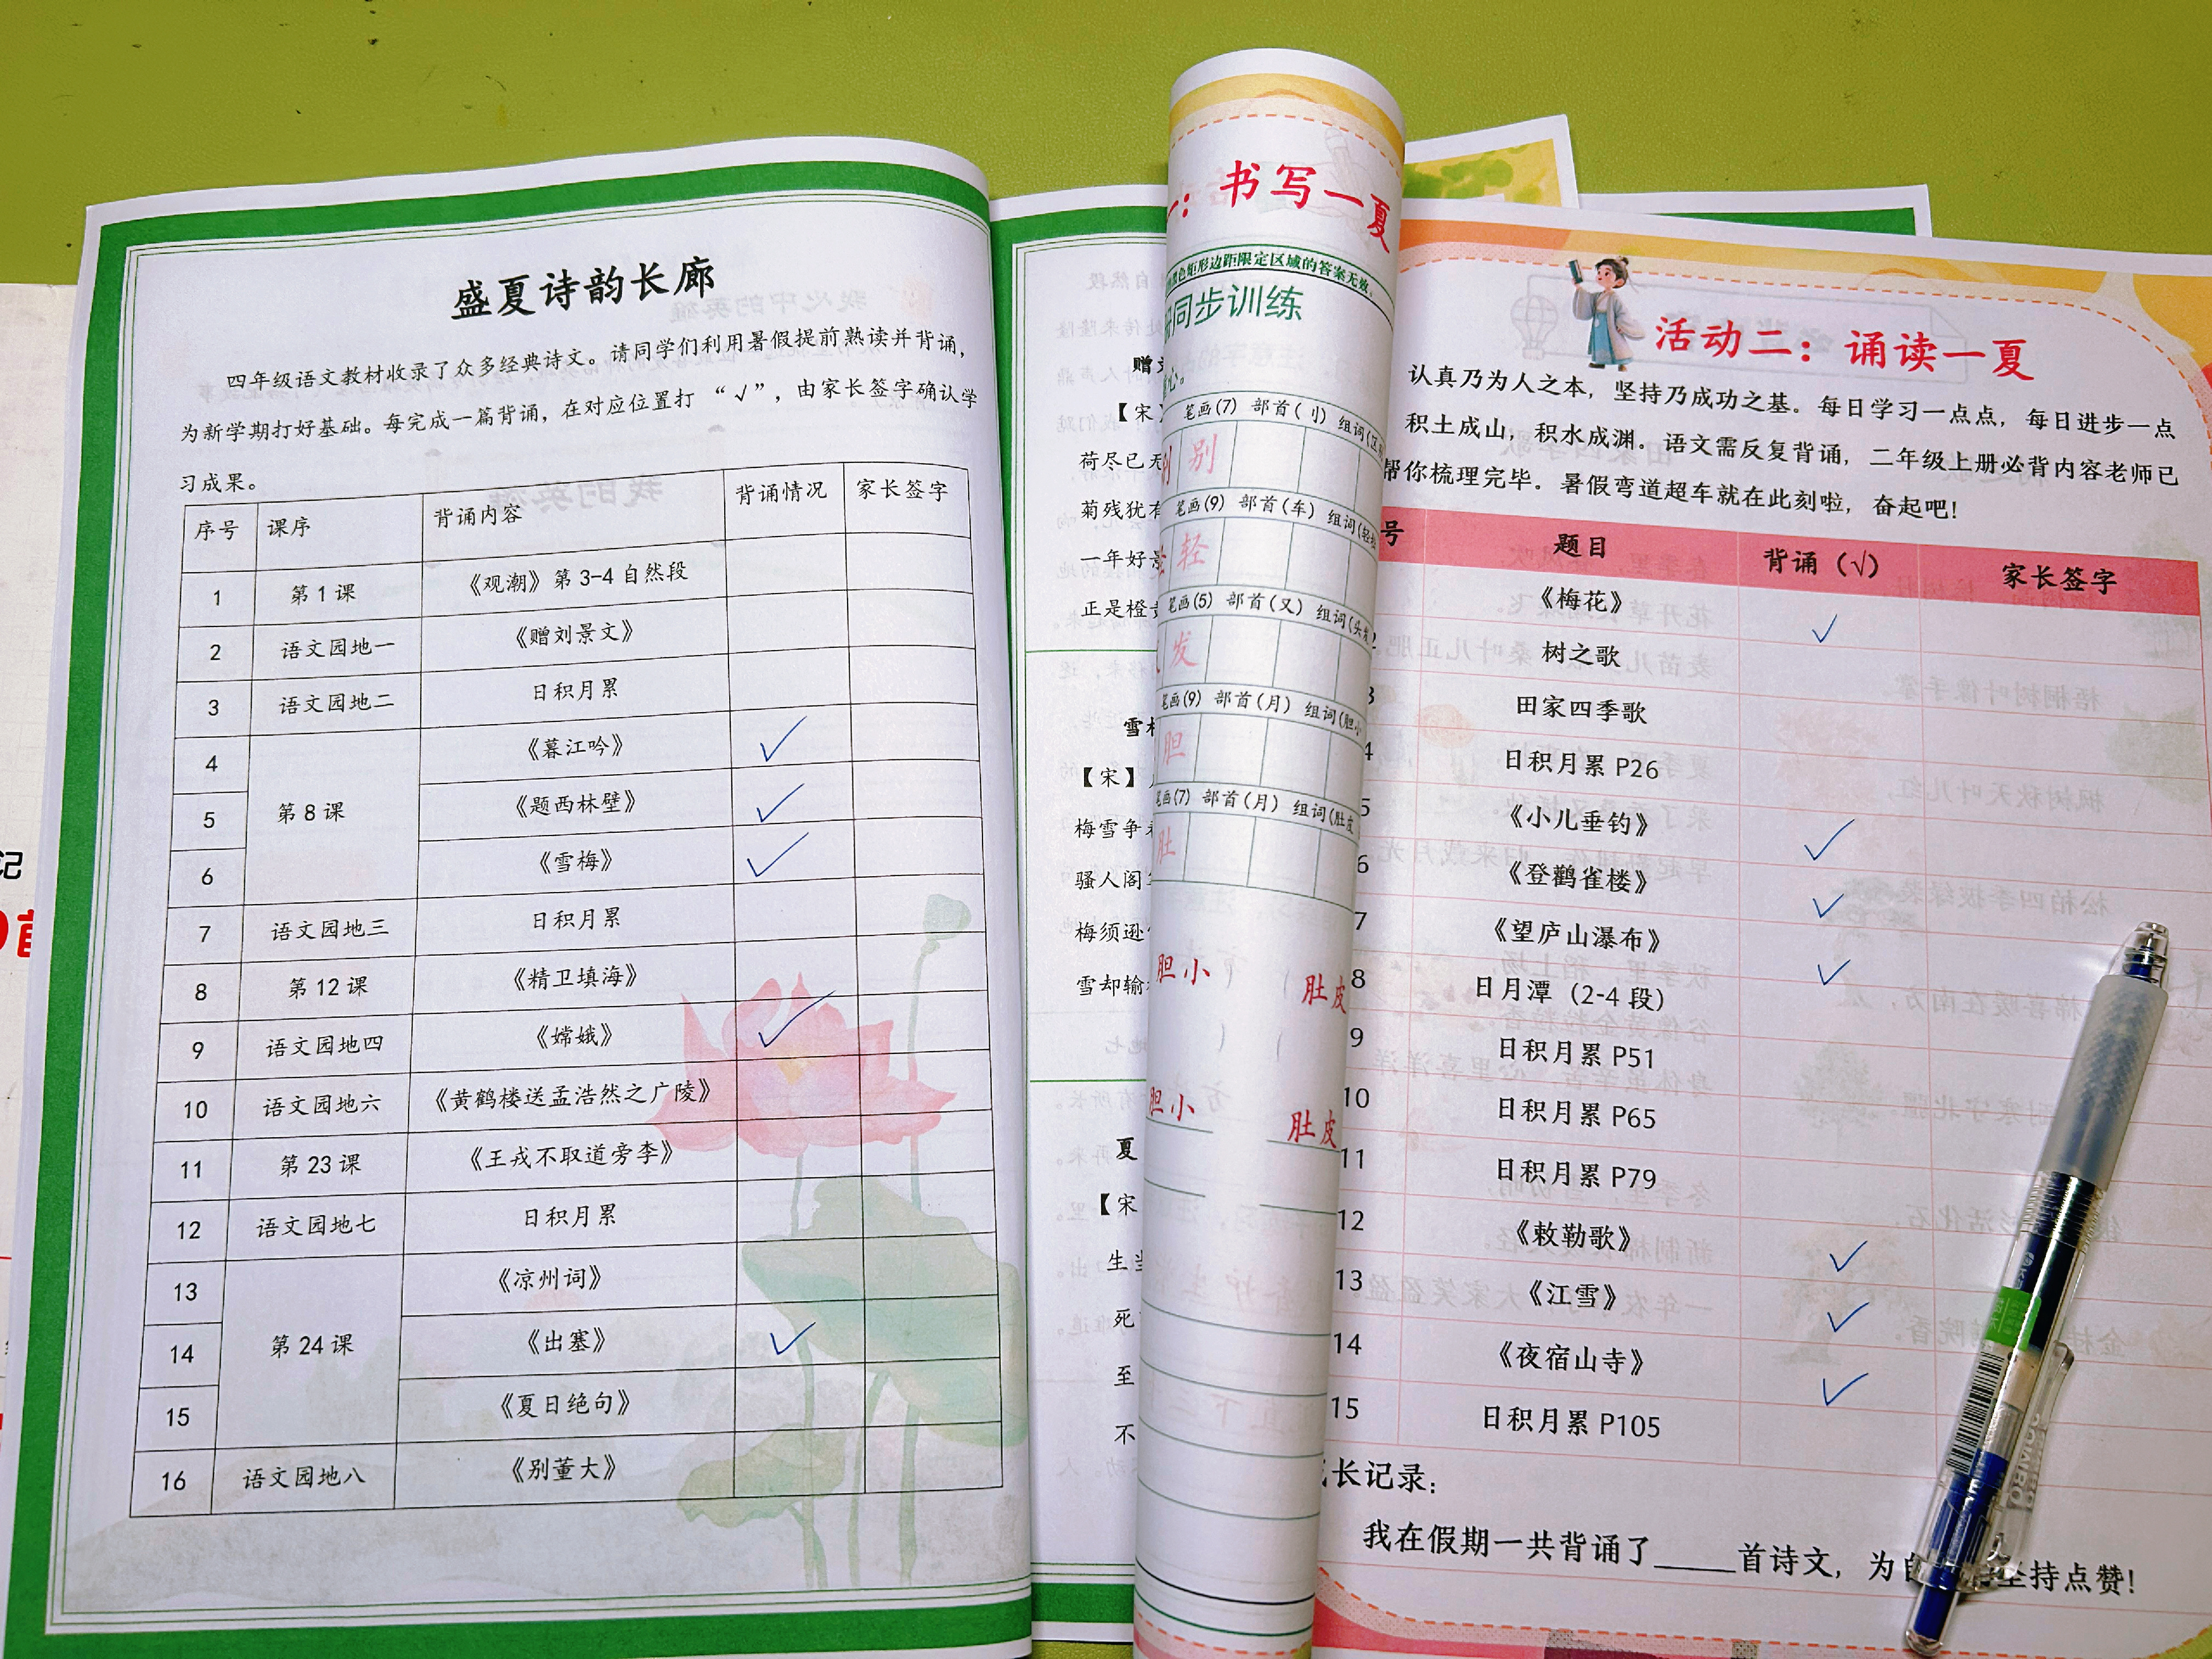 盛夏诗韵长廊
四年级语文教材收录了众多经典诗文。请同学们利用暑假提前熟读并背诵，
为新学期打好基础。每完成一篇背诵，在对应位置打“√”，由家长签字确认学
习成果。
序号 课序 背诵内容 背诵情况 家长签字
1 第1课 《观潮》第3-4自然段
2 语文园地一 《赠刘景文》
3 语文园地二 日积月累
4 《暮江吟》 √
5 第8课 《题西林壁》 √
6 《雪梅》 √
7 语文园地三 日积月累
8 第12课 《精卫填海》
9 语文园地四 《嫦娥》 √
10 语文园地六 《黄鹤楼送孟浩然之广陵》
11 第23课 《王戎不取道旁李》
12 语文园地七 日积月累
13 《凉州词》
14 第24课 《出塞》 √
15 《夏日绝句》
16 语文园地八 《别董大》
【宋】
荷尽已无
菊残犹有
一年好景
正是橙黄
雪梅
【宋】
梅雪争
骚人阁
梅须逊
雪却输
夏
【宋
生当
死
至
不
一：书写一夏
色矩形边距限定区域的答案无效。
同步训练
心。
笔画(7) 部首(刂) 组词(区
别 别
笔画(9) 部首(车) 组词(轻
轻
笔画(5) 部首(又) 组词(头发
发
笔画(9) 部首(月) 组词(胆小
胆
笔画(7) 部首(月) 组词(肚皮
肚
胆小 肚皮
胆小 肚皮
活动二：诵读一夏
认真乃为人之本，坚持乃成功之基。每日学习一点点，每日进步一点
积土成山，积水成渊。语文需反复背诵，二年级上册必背内容老师已
帮你梳理完毕。暑假弯道超车就在此刻啦，奋起吧！
号 题目 背诵（√） 家长签字
《梅花》 √
树之歌
3 田家四季歌
4 日积月累 P26
5 《小儿垂钓》 √
6 《登鹳雀楼》 √
7 《望庐山瀑布》 √
8 日月潭（2-4段）
9 日积月累 P51
10 日积月累 P65
11 日积月累 P79
12 《敕勒歌》 √
13 《江雪》 √
14 《夜宿山寺》 √
15 日积月累 P105
长记录：
我在假期一共背诵了_____首诗文，为自 坚持点赞！
记